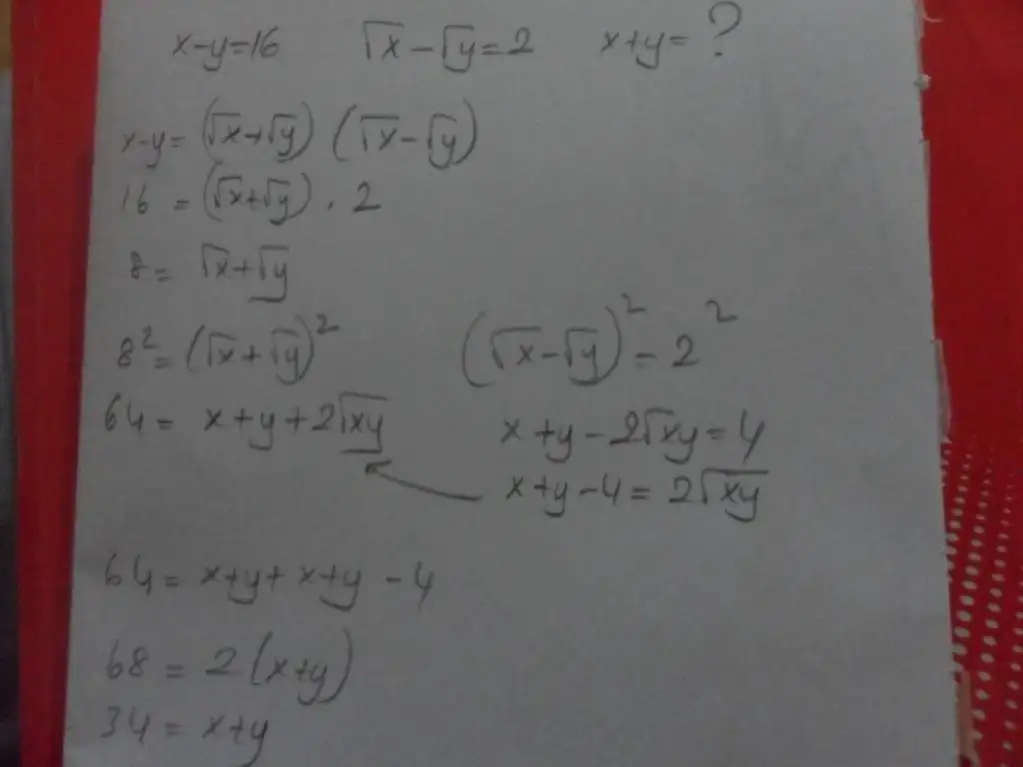 x-y=16 √x-√y=2 x+y=?
x-y= (√x+√y) (√x-√y)
16 = (√x+√y) . 2
8= √x+√y
8²= (√x+√y)²
64= x+y+2√xy
(√x-√y)² = 2²
x+y-2√xy=4
x+y-4= 2√xy
64= x+y+x+y-4
68= 2(x+y)
34= x+y